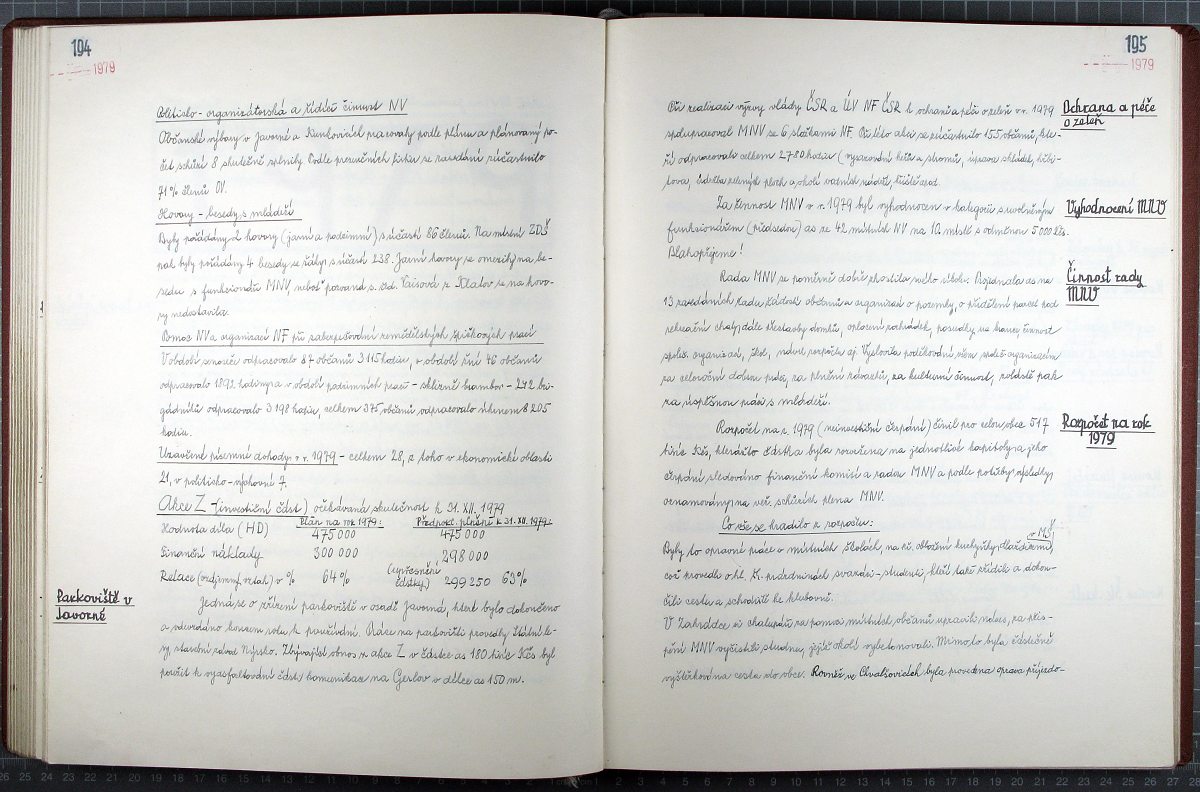 194
1979
Politicko-organizátorská a řídící činnost NV
Občanské výbory v Javorné a Kunkovicích pracovaly podle plánu a plánovaný po-
čet schůzí 8 skutečně splnily. Podle presenčních listin se zasedání zúčastnilo
71 % členů OV.
Hovory - besedy s mládeží
Byly pořádány 2 hovory (jarní a podzimní) s účastí 86 členů. Na místní ZDŠ
pak byly pořádány 4 besedy se žáky s účastí 238. Jarní hovory se omezily na be-
sedu s funkcionáři MNV, neboť pozvaná s. z Klatov se na hovo-
ry nedostavila.
Pomoc NV a organizací NF při zabezpečování zemědělských špičkových prací
V období senoseče odpracovalo 87 občanů 3 115 hodin, v období žní 46 občanů
odpracovalo 1892 hodiny a v období podzimních prací - sklizně brambor - 242 bri-
gádníků odpracovalo 3 198 hodin, celkem 375 občanů odpracovalo úhrnem 8 205
hodin.
Uzavřené písemné dohody v r. 1979 - celkem 28, z toho v ekonomické oblasti
21, v politicko-výchovné 7.
Akce Z - (investiční část) očekávaná skutečnost k 31. XII. 1979
Plán na rok 1979: Předpokl. plnění k 31. XII. 1979:
Hodnota díla (HD) 475 000 475 000
Finanční náklady 300 000 298 000
Relace (vzájemný vztah) v % 64 % (upřesnění částky) 299 250 63 %
Parkoviště v
Javorné
Jedná se o zřízení parkoviště v osadě Javorná, které bylo dokončeno
a odevzdáno koncem roku k používání. Práce na parkovišti provedly Státní le-
sy, stavební závod Nýrsko. Zbývající obnos z akce Z v částce as 180 tisíc Kčs byl
použit k vyasfaltování části komunikace na Gerlov v délce as 150 m.
195
1979
Ochrana a péče
o zeleň
Při realizaci výzvy vlády ČSR a ÚV NF ČSR k ochraně a péči o zeleň v r. 1979
spolupracoval MNV se 6 složkami NF. Při této akci se zúčastnilo 155 občanů, kte-
ří odpracovali celkem 2780 hodin (vysazování keřů a stromů, úprava skládek, hřbi-
tova, údržba zelených ploch a okolí vodních nádrží, hřiště apod.
Vyhodnocení MNV
Za činnost MNV v r. 1979 byl vyhodnocen v kategorii s uvolněným
funkcionářem (předsedou) as ze 42 místních NV na 10. místě s odměnou 5 000 Kčs.
Blahopřejeme!
Činnost rady
MNV
Rada MNV se poměrně dobře zhostila svého úkolu. Projednala as na
13 zasedáních řadu žádostí občanů a organizací o pozemky, o přidělení parcel pod
rekreační chaty, dále přestavby domků, oplocení zahrádek, posudky na brance, činnost
společ. organizací, škol, návrh rozpočtu aj. Vyslovila poděkování všem společ. organizacím
za celoroční dobrou práci, za plnění závazků, za kulturní činnost, zvláště pak
za úspěšnou práci s mládeží.
Rozpočet na rok
1979
Rozpočet na r. 1979 (neinvestiční čerpání) činil pro celou obec 517
tisíc Kčs, kterážto částka byla rozvržena na jednotlivé kapitoly a jeho
čerpání sledováno finanční komisí a radou MNV a podle potřeby výsledky
oznamovány na veř. schůzích plena MNV.
Co vše se hradilo z rozpočtu:
Byly to opravné práce v místních školách, na př. obložení kuchyňky v MŠ dlaždicemi,
což provedli o hl. šk. prázdninách svazáci - studenti, kteří také zřídili a dokon-
čili cestu a schodiště ke klubovně.
V Zahrádce si chalupáři za pomoci místních občanů upravili náves, za přis-
pění MNV vyčistili studnu, jejíž okolí vybetonovali. Mimo to byla částečně
vyštěrkována cesta do obce. Rovněž ve Chvalšovicích byla provedena oprava příjezdo-